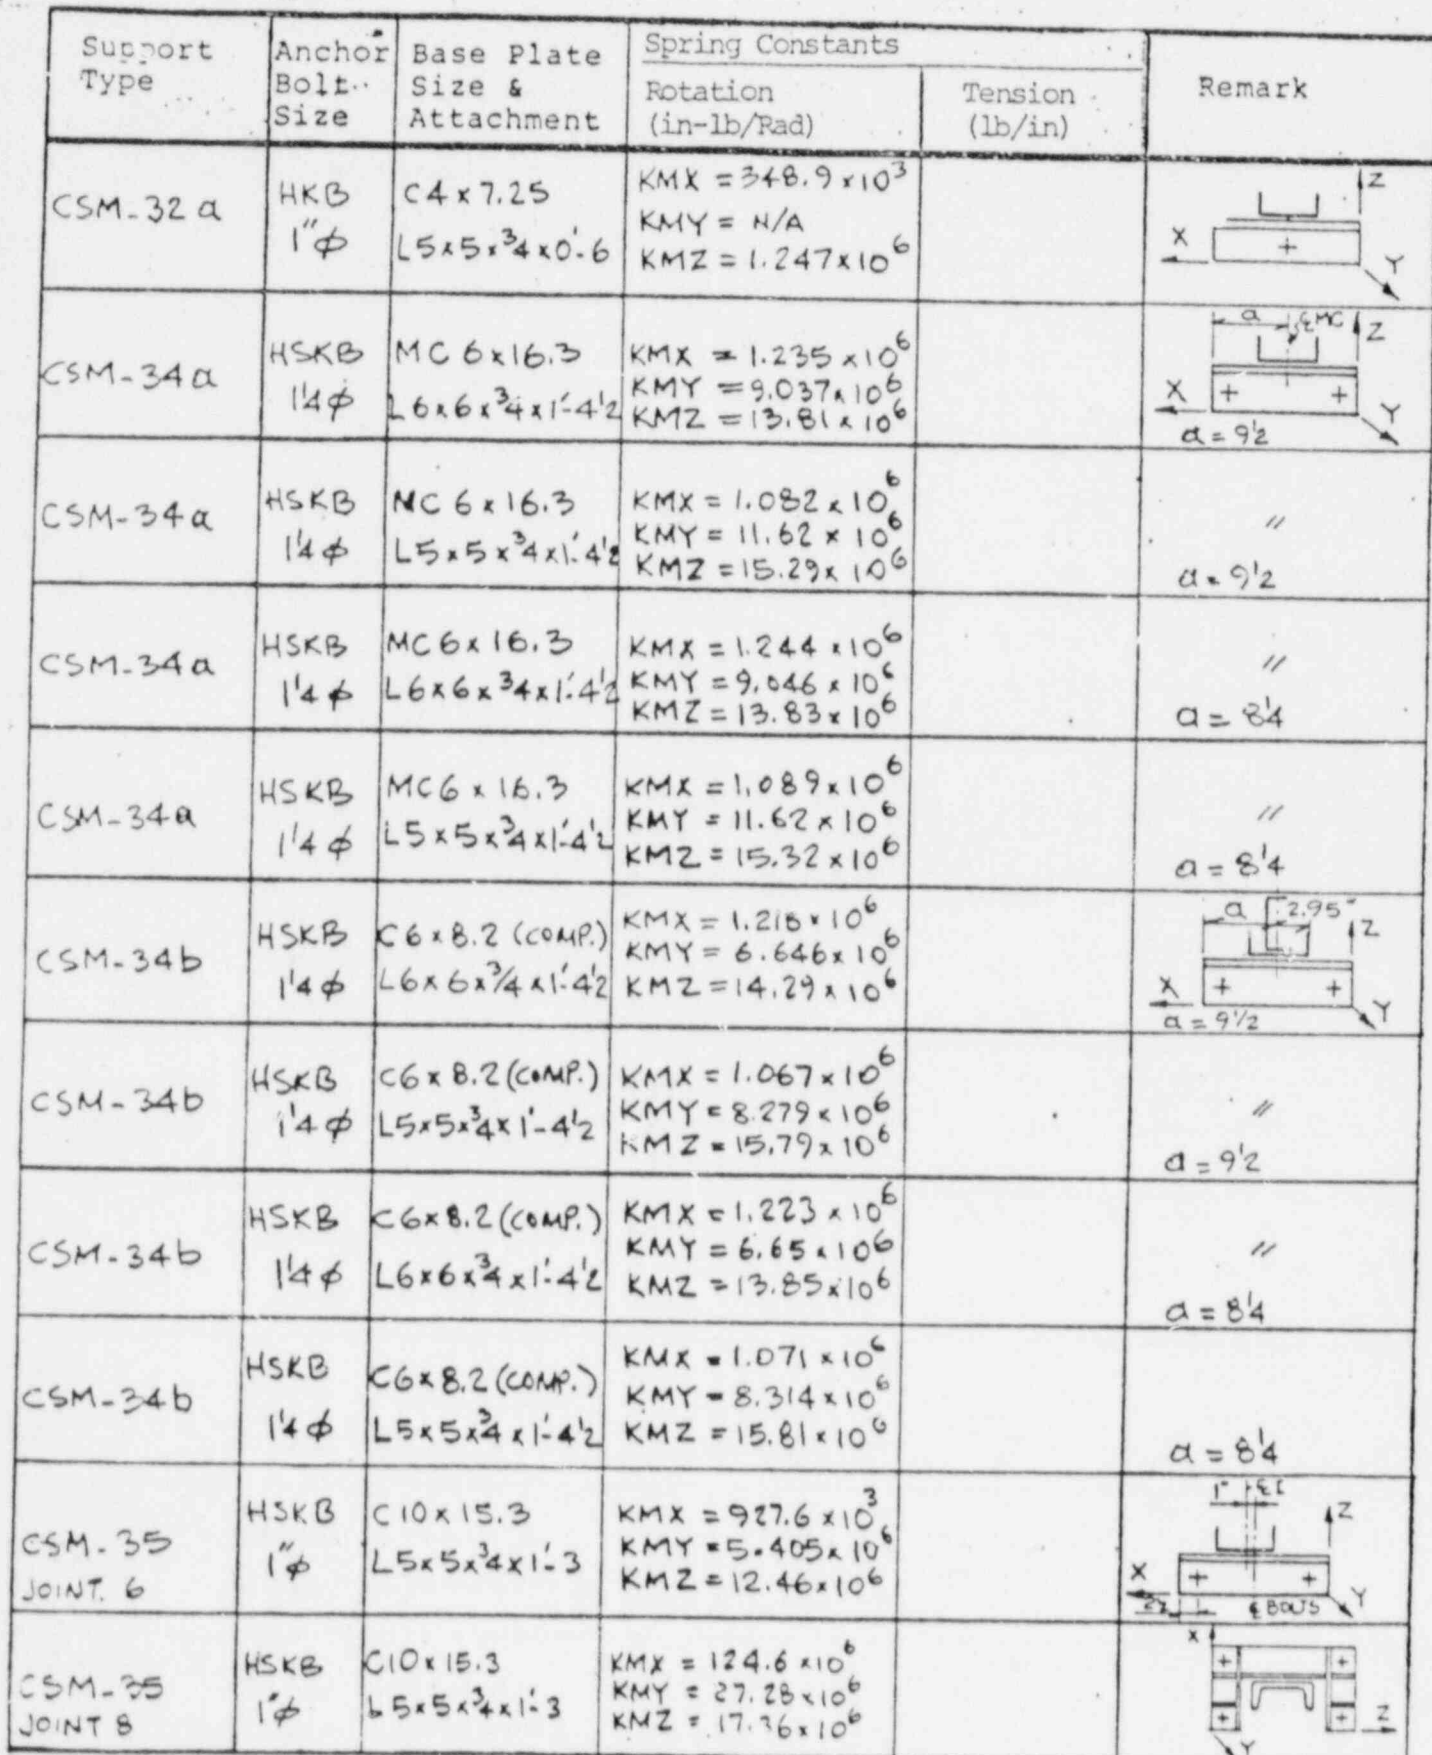 Support Type
Anchor Bolt Size
Base Plate Size & Attachment
Spring Constants
Rotation (in-lb/Rad)
Tension (lb/in)
Remark
CSM-32a
HKB
1"φ
C4 x 7.25
L5x5x3/4x0'-6
KMX = 348.9 x 10^3
KMY = N/A
KMZ = 1.247 x 10^6
Z
X
Y
CSM-34a
HSKB
1 1/4 φ
MC 6x16.3
L6x6x3/4x1'-4 1/2
KMX = 1.235 x 10^6
KMY = 9.037 x 10^6
KMZ = 13.81 x 10^6
a
℄ MC
Z
X
Y
a = 9 1/2
CSM-34a
HSKB
1 1/4 φ
MC 6 x 16.3
L5x5x3/4x1'-4 1/2
KMX = 1.082 x 10^6
KMY = 11.62 x 10^6
KMZ = 15.29 x 10^6
〃
a = 9 1/2
CSM-34a
HSKB
1 1/4 φ
MC 6 x 16.3
L6x6x3/4x1'-4 1/2
KMX = 1.244 x 10^6
KMY = 9.046 x 10^6
KMZ = 13.83 x 10^6
〃
a = 8 1/4
CSM-34a
HSKB
1 1/4 φ
MC6 x 16.3
L5x5x3/4x1'-4 1/2
KMX = 1.089 x 10^6
KMY = 11.62 x 10^6
KMZ = 15.32 x 10^6
〃
a = 8 1/4
CSM-34b
HSKB
1 1/4 φ
C6x8.2 (COMP.)
L6x6x3/4x1'-4 1/2
KMX = 1.218 x 10^6
KMY = 6.646 x 10^6
KMZ = 14.29 x 10^6
a
2.95"
Z
X
Y
a = 9 1/2
CSM-34b
HSKB
1 1/4 φ
C6x8.2 (COMP.)
L5x5x3/4x1'-4 1/2
KMX = 1.067 x 10^6
KMY = 8.279 x 10^6
KMZ = 15.79 x 10^6
〃
a = 9 1/2
CSM-34b
HSKB
1 1/4 φ
C6x8.2 (COMP.)
L6x6x3/4x1'-4 1/2
KMX = 1.223 x 10^6
KMY = 6.65 x 10^6
KMZ = 13.85 x 10^6
〃
a = 8 1/4
CSM-34b
HSKB
1 1/4 φ
C6x8.2 (COMP.)
L5x5x3/4x1'-4 1/2
KMX = 1.071 x 10^6
KMY = 8.314 x 10^6
KMZ = 15.81 x 10^6
a = 8 1/4
CSM-35
JOINT. 6
HSKB
1"φ
C10x15.3
L5x5x3/4x1'-3
KMX = 927.6 x 10^3
KMY = 5.405 x 10^6
KMZ = 12.46 x 10^6
1"
Z
X
Y
℄ BOLTS
CSM-35
JOINT 8
HSKB
1"φ
C10x15.3
L5x5x3/4x1'-3
KMX = 124.6 x 10^6
KMY = 27.28 x 10^6
KMZ = 17.36 x 10^6
X
Z
Y